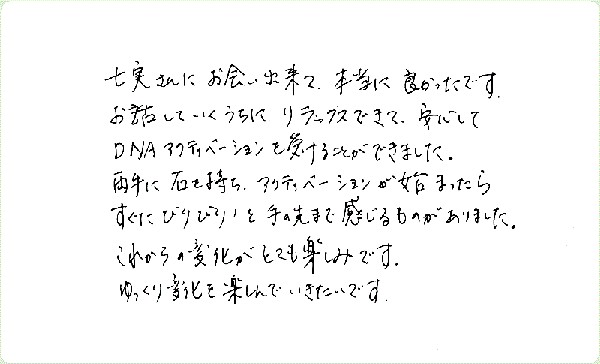 七実さんに お会い出来て、本当に 良かったです。
お話していくうちに リラックスできて、安心して
DNAアクティベーションを受けることができました。
両手に 石を持ち、アクティベーションが始まったら
すぐにびりびり!と 手の先まで感じるものがありました。
これからの変化がとても楽しみです。
ゆっくり変化を楽しんでいきたいです。